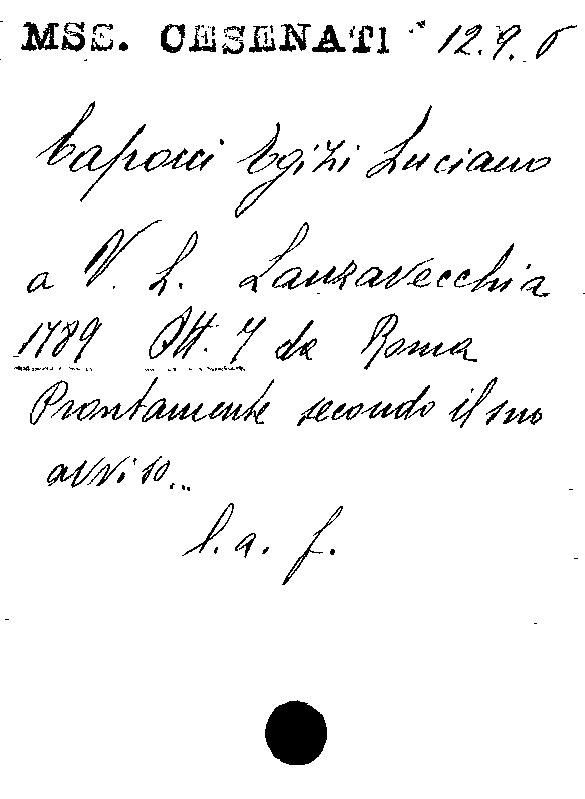 MSS. CESENATI 12.9.6
Capocci Egizi Luciano
a V. L. Lanzavecchia
1789 Ott. 7 da Roma
Prontamente secondo il suo
avviso...
l. a. f.